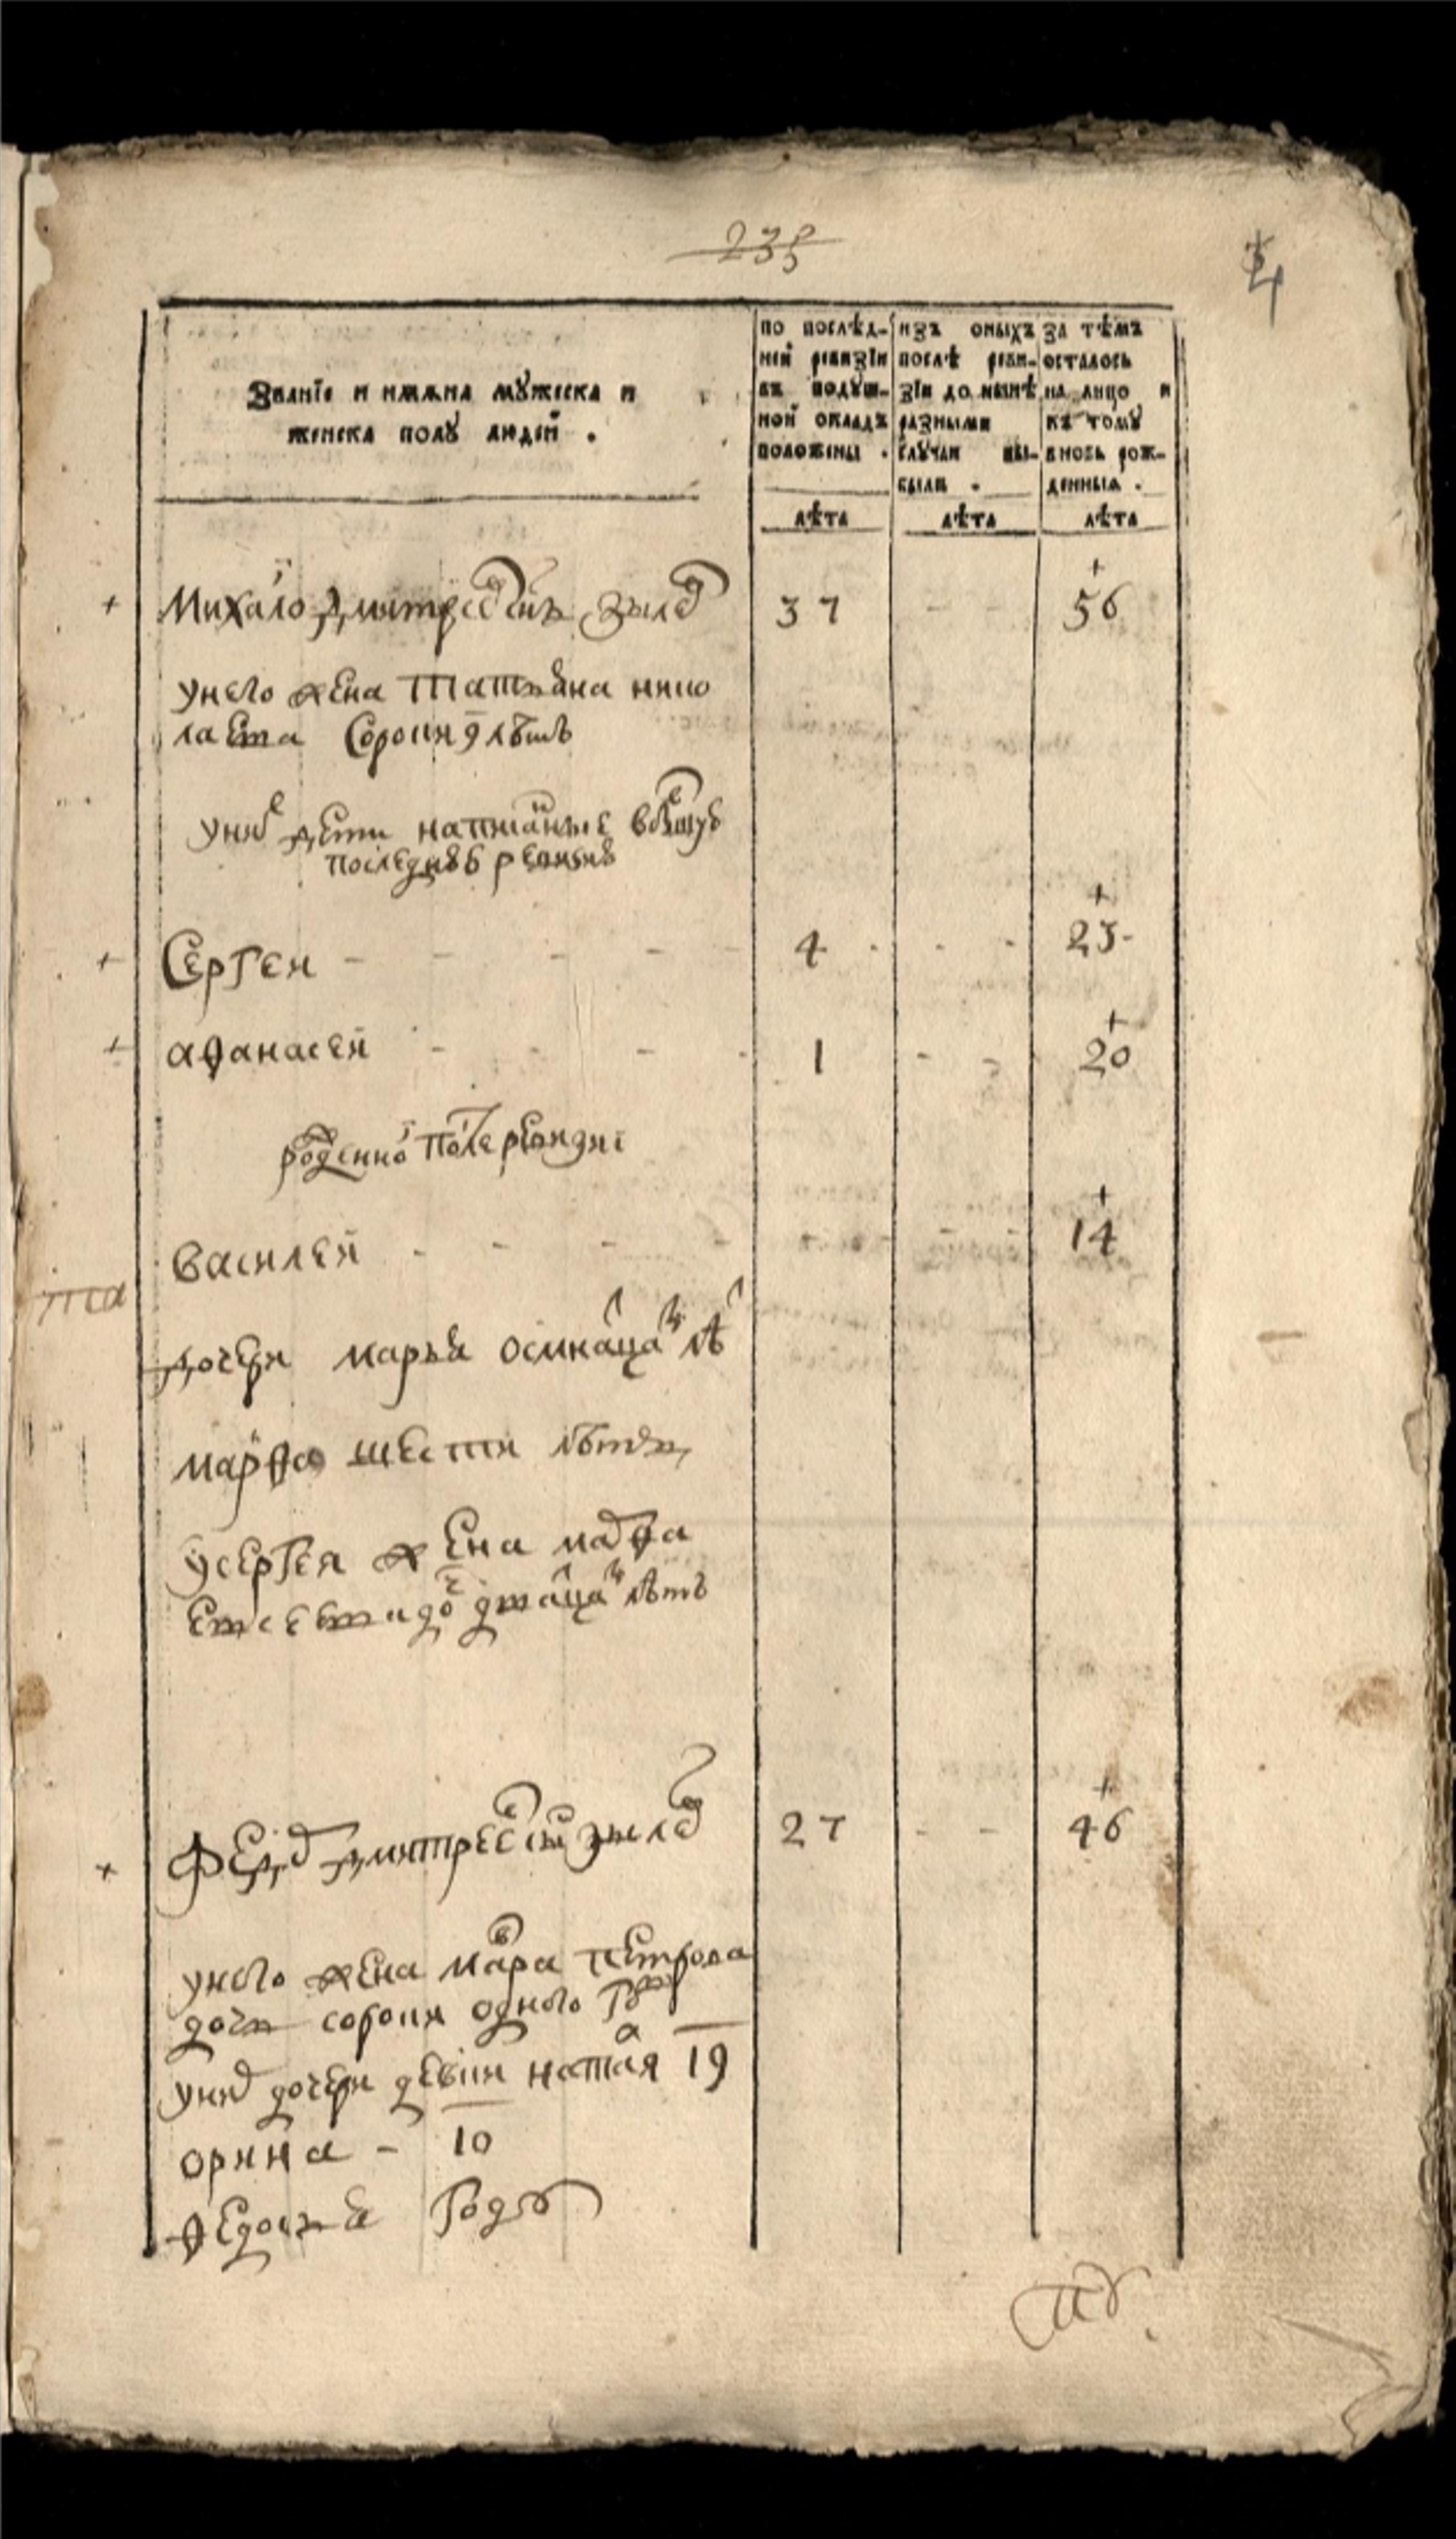 235
4
Званїе и имѧна мꙋжеска и
женска полꙋ людей .
по послѣд-
ней ревизїи
въ подꙋш-
ной окладъ
положены .
лѣта
изъ оныхъ
послѣ реви-
зїи до нынѣ
разными
слꙋчаи вы-
были .
лѣта
за тѣмъ
осталось
на лицо и
къ томꙋ
вновь рож-
денныя .
лѣта
+ Михаило Дмитреевъ снъ Зылев 37 - - + 56
унего жена Татьяна нико
лаевна сорокин
уних дети написанные
последнеѣ ревизиѣ
+ Сергеи - - - - 4 - - - + 25
+ афанасей - - - - 1 - - + 20
рожденной после ревизиї
василей - - - - - + 14
дочери марья осмнацати лѣ
марфа шести лѣтъ
усергея жена
дватцати лѣтъ
+ Федор дмитреев снъ зылев 27 - - + 46
унего жена мавра петрова
дочь сорока одного году
уних дочери девки наталя 19
орина - 10
федосья году